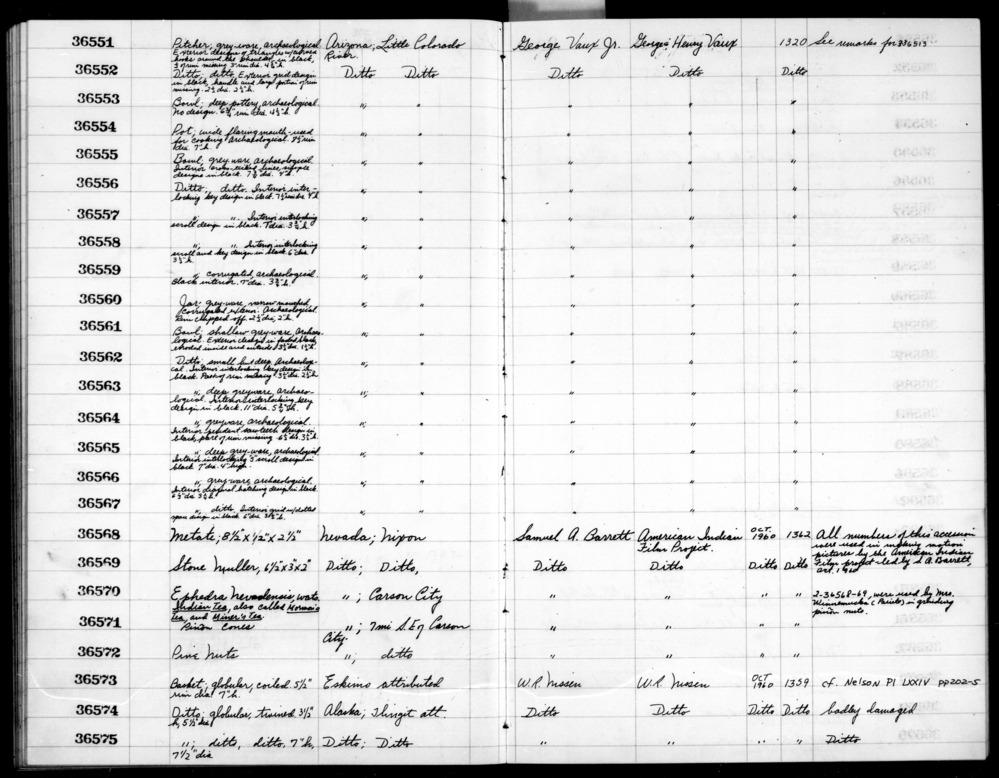 36551 Pitcher, grey-ware, archaeological. Arizona; Little Colorado George Vaux Jr. George; Henry Vaux 1320 See remarks for #36513
Exterior design of triangles w/
hooks around the shoulder in black, River.
rim missing 5" rim dia. 4½" h.
36552 Ditto; ditto. Exterior grid design Ditto Ditto Ditto Ditto Ditto
in black, handle and large portion of rim
missing.
36553 Bowl; deep pottery, archaeological " " " " "
No design. rim dia. 4½" h.
36554 Pot, wide flaring mouth-used " " " " "
for cooking. Archaeological. rim
dia. 7" h.
36555 Bowl, grey ware, archaeological. " " " " "
Interior
designs in black.
36556 Ditto, ditto. Interior inter- " " " " "
locking key design in black.
36557 " " Interior interlocking " " " " "
scroll design in black. 7" dia. 3¾" h
36558 " " Interior interlocking " " " " "
scroll and key design in black 6" dia.
3½" h
36559 " corrugated, archaeological " " " " "
black interior. 7" dia. 3¾" h.
36560 Jar: grey-ware, narrow mouthed, " " " " "
corrugated exterior. Archaeological.
Rim chipped off. 2½" dia, 2" h
36561 Bowl; shallow grey-ware, Archaeo- " " " " "
logical. Exterior design in faded black,
eroded inside and outside
36562 Ditto; small but deep Archaeologi- " " " " "
cal. Interior interlocking key design in
black. Part of rim missing
36563 " deep greyware, archaeo- " " " " "
logical. Interior interlocking key
design in black. 11" dia. 5¾" h.
36564 " greyware, archaeological. " " " " "
Interior pendent sawteeth design in
black, part of rim missing
36565 " deep grey-ware, archaeological " " " " "
Interior interlocking scroll design in
black 7" dia. 4" high.
36566 " grey-ware, archaeological. " " " " "
Interior diagonal hatching design in black
36567 " ditto. Interior grid w/dotted " " " " "
design in black
36568 Metate; 8½" x ½" x 2½" Nevada; Nixon Samuel A. Barrett American Indian OCT. 1960 1362 All numbers of this accession
Film Project. were used in making motion
pictures by the American Indian
36569 Stone Muller, 6½"x3"x2" Ditto; Ditto, Ditto Ditto Ditto Ditto Film project led by S. A. Barrett,
Oct. 1960
36570 Ephedra Nevadensis, " ; Carson City " " " " 2-36568-69, were used by Mrs.
Indian Tea, also called Mormon's Winnemucka (Paiute) in grinding
tea, and Miner's tea pinon nuts.
36571 Pinon Cones " ; 7mi S.E of Carson " " " "
City.
36572 Pine Nuts " ; ditto " " " "
36573 Basket; globular, coiled 5½" Eskimo attributed W.R. Nissen W.R. Nissen OCT 1960 1359 cf. Nelson Pl LXXIV pp202-5
rim dia 7" h.
36574 Ditto; globular, twined 3½" Alaska; Tlingit att. Ditto Ditto Ditto Ditto badley damaged
h, 5½" dia
36575 " ; ditto, ditto, 7" h, Ditto; Ditto " " " " Ditto
7½" dia